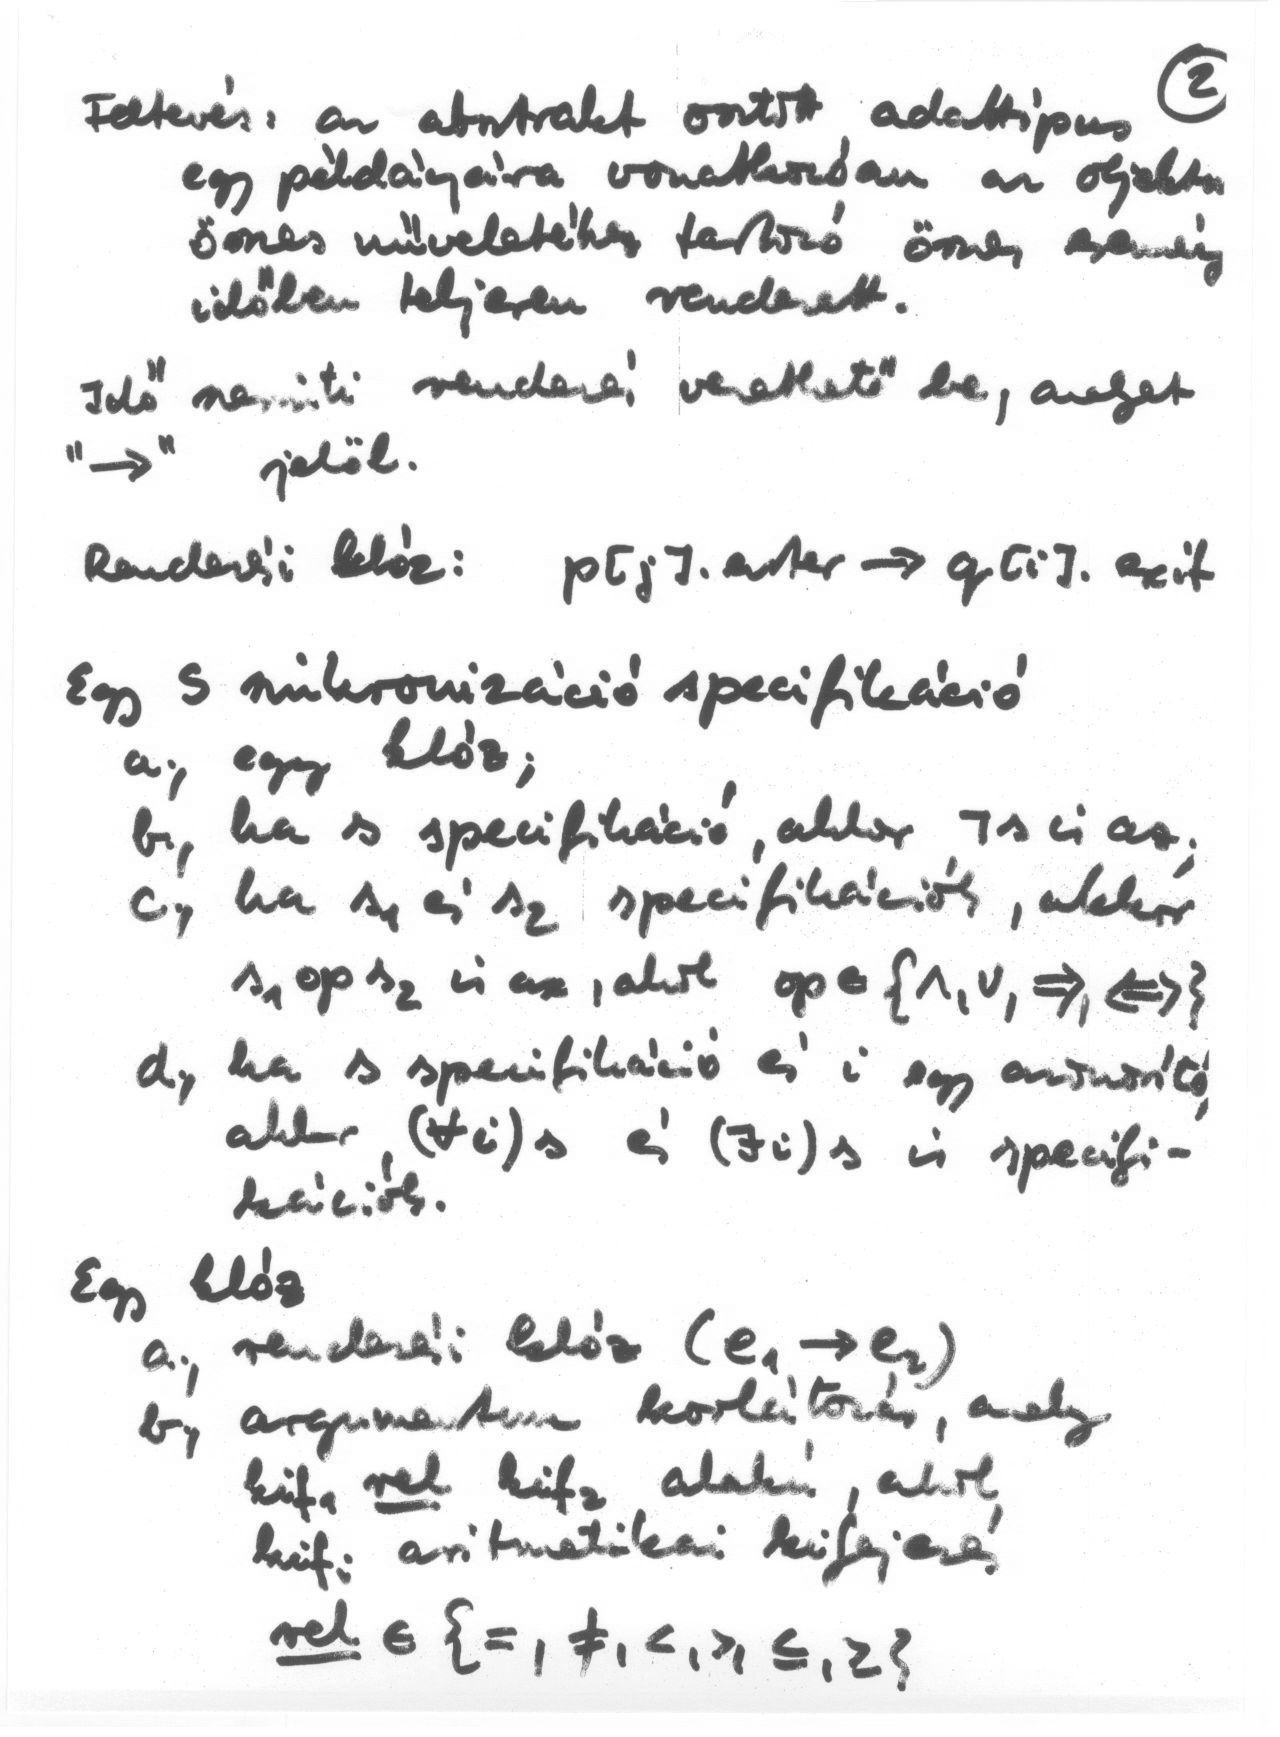 2
Feltevés: az absztrakt osztott adattípus
egy példányaira vonatkozóan az objektum
összes műveletéhez tartozó összes esemény
időben teljesen rendezett.
Idő szerinti rendezés vezethető be, melyet
"→" jelöl.
Rendezési klóz: p[j].enter → q[i].exit
Egy S szinkronizáció specifikáció
a., egy klóz;
b., ha s specifikáció, akkor ¬s is az;
c., ha s₁ és s₂ specifikációk, akkor
s₁ op s₂ is az, ahol op ∈ {∧, ∨, ⇒, ⇔}
d., ha s specifikáció és i egy azonosító,
akkor (∀i)s és (∃i)s is specifi-
kációk.
Egy klóz
a., rendezési klóz (e₁ → e₂)
b., argumentum korlátozás, mely
kif₁ rel kif₂ alakú, ahol
kifᵢ aritmetikai kifejezés
rel ∈ {=, ≠, <, >, ≤, ≥}